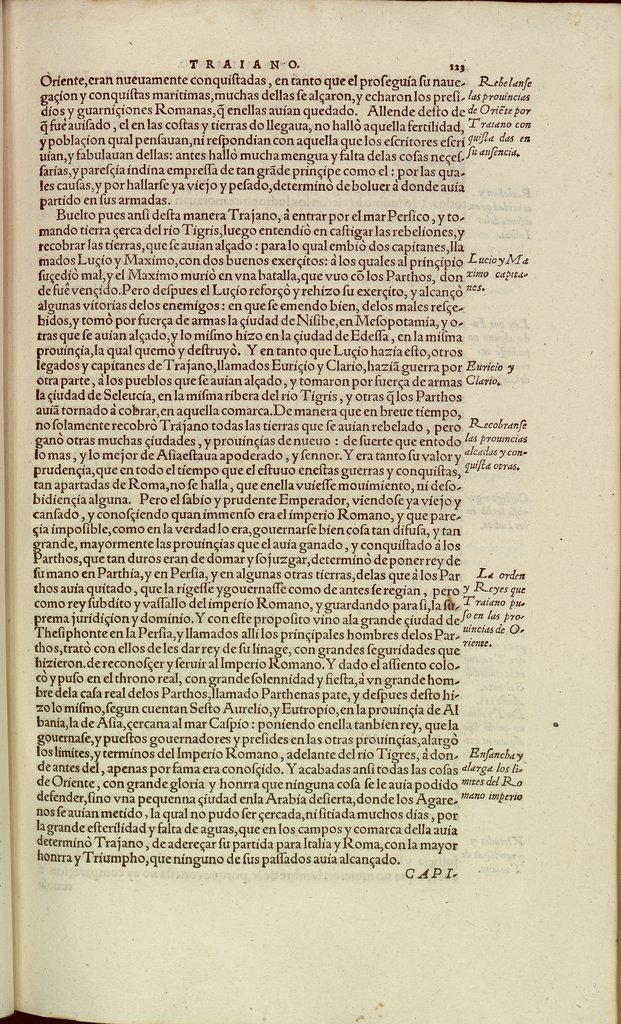 TRAIANO.
123
Oriente, eran nueuamente conquiſtadas, en tanto que el proſeguía ſu naue-
gaçíon y conquíſtas marítimas, muchas dellas ſe alçaron, y echaron los preſi-
díos y guarniçíones Romanas, q̃ enellas auían quedado. Allende deſto de
q̃ fué auíſado, el en las coſtas y tierras do llegaua, no halló aquella fertilidad,
y poblaçíon qual penſauan, ni reſpondían con aquella que los eſcritores eſcri
uían, y fabulauan dellas: antes halló mucha mengua y falta delas coſas neçeſ-
ſarías, y pareſçía indína empreſſa de tan grãde prínçípe como el: por las qua-
les cauſas, y por hallarſe ya víejo y peſado, determinó de boluer â donde auía
partido en sus armadas.
Rebelanſe
las prouincias
de Oriẽte por
Traiano con
quiſta das en
ſu auſencia.
Buelto pues anſi deſta manera Trajano, â entrar por el mar Perſico, y to-
mando tierra çerca del río Tigrís, luego entendió en caſtigar las rebeliones, y
recobrar las tierras, que ſe auían alçado: para lo qual embió dos capitanes, lla
mados Luçío y Maxímo, con dos buenos exerçítos: â los quales al prínçípío
ſuçedió mal, y el Maxímo murió en vna batalla, que vuo cõ los Parthos, don
de fuê vençído. Pero deſpues el Luçío reforçó y rehízo ſu exerçíto, y alcançó
algunas vitorías delos enemígos: en que ſe emendo bíen, delos males reſçe-
bídos, y tomò por fuerça de armas la çíudad de Niſíbe, en Meſopotamía, y o-
tras que ſe auían alçado, y lo míſmo hízo en la çíudad de Edeſſa, en la míſma
prouínçía, la qual quemó y deſtruyò. Y en tanto que Luçío hazía eſto, otros
legados y capítanes de Trajano, llamados Euríçío y Clarío, hazíã guerra por
otra parte, â los pueblos que ſe auían alçado, y tomaron por fuerça de armas
la çíudad de Seleucía, en la míſma ríbera del río Tigrís, y otras q̃ los Parthos
auíã tornado â cobrar, en aquella comarca. De manera que en breue tíempo,
no ſolamente recobrò Trajano todas las tíerras que ſe auían rebelado, pero
ganò otras muchas çíudades, y prouínçías de nueuo: de ſuerte que entodo
lo mas, y lo mejor de Aſia eſtaua apoderado, y ſennor. Y era tanto ſu valor y
prudençía, que en todo el tíempo que el eſtuuo eneſtas guerras y conquíſtas,
tan apartadas de Roma, no ſe halla, que enella vuíeſſe mouímíento, ní deſo-
bidíençía alguna. Pero el ſabío y prudente Emperador, víendoſe ya víejo y
canſado, y conoſçíendo quan ímmenſo era el ímperío Romano, y que pare-
çía ímpoſíble, como en la verdad lo era, gouernarſe bíen coſa tan dífuſa, y tan
grande, mayormente las prouínçías que el auía ganado, y conquíſtado â los
Parthos, que tan duros eran de domar y ſojuzgar, determinò de poner rey de
ſu mano en Parthía, y en Perſía, y en algunas otras tíerras, delas que â los Par
thos auía quítado, que la rígeſſe y gouernaſſe como de antes ſe regían, pero
como rey ſubdíto y vaſſallo del ímperío Romano, y guardando para ſi, la ſu-
prema jurídíçíon y domínío. Y con eſte propoſito víno ala grande çíudad de
Theſiphonte en la Perſía, y llamados allí los prínçípales hombres delos Par-
thos, tratò con ellos de les dar rey de ſu línage, con grandes ſegurídades que
hízíeron. de reconoſçer y ſeruír al Imperío Romano. Y dado el aſſíento colo-
cò y puſo en el throno real, con grande ſolennídad y fíeſta, â vn grande hom-
bre dela caſa real delos Parthos, llamado Parthenas pate, y deſpues deſto hí-
zo lo míſmo, ſegun cuentan Seſto Aurelío, y Eutropío, en la prouínçía de Al
banía, la de Aſía, çercana al mar Caſpío: poníendo enella tanbíen rey, que la
gouernaſe, y pueſtos gouernadores y preſides en las otras prouínçías, alargò
los límítes, y termínos del Imperío Romano, adelante del río Tígres, â don-
de antes del, apenas por fama era conoſçído. Y acabadas anſi todas las coſas
de Oríente, con grande gloría y honrra que nínguna coſa ſe le auía podído
defender, ſino vna pequenna çíudad enla Arabía deſierta, donde los Agare-
nos ſe auían metído, la qual no pudo ſer çercada, ní ſitíada muchos días, por
la grande eſterílídad y falta de aguas, que en los campos y comarca della auía
determinò Trajano, de adereçar ſu partída para Italía y Roma, con la mayor
honrra y Tríumpho, que nínguno de sus paſſados auía alcançado.
Lucio y Ma
ximo capita-
nes.
Euricio y
Clario.
Recobranſe
las prouincias
alçadas y con-
quiſta otras.
La orden
y Reyes que
Traiano pu-
ſo en las pro-
uincias de O-
riente.
Enſancha y
alarga los li-
mites del Ro
mano imperio
CAPI-